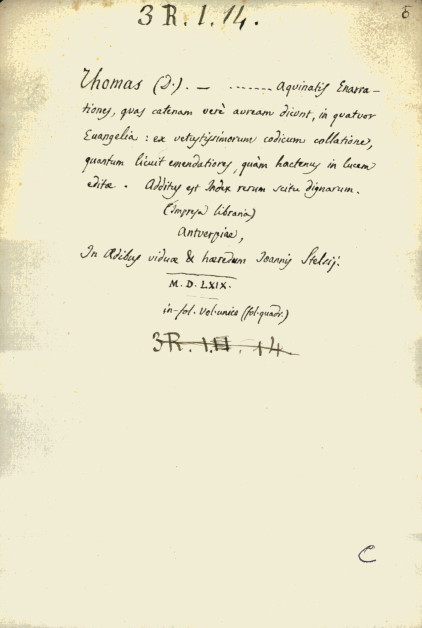 3 R. I. 14.
Thomas (D.). — ....... Aquinatis Enarra-
tiones, quas catenam verè auream dicunt, in quatuor
Euangelia : ex vetustissimorum codicum collatione,
quantum licuit emendatiores, quàm hactenus in lucem
editæ. Additus est Index rerum scitu dignarum.
(Impresa libraria)
Antverpiae,
In Ædibus viduæ & hæredum Ioannis Stelsij.
M. D. LXIX.
in-fol. vol. unico (fol. quadr.)
3 R. I. 14
C